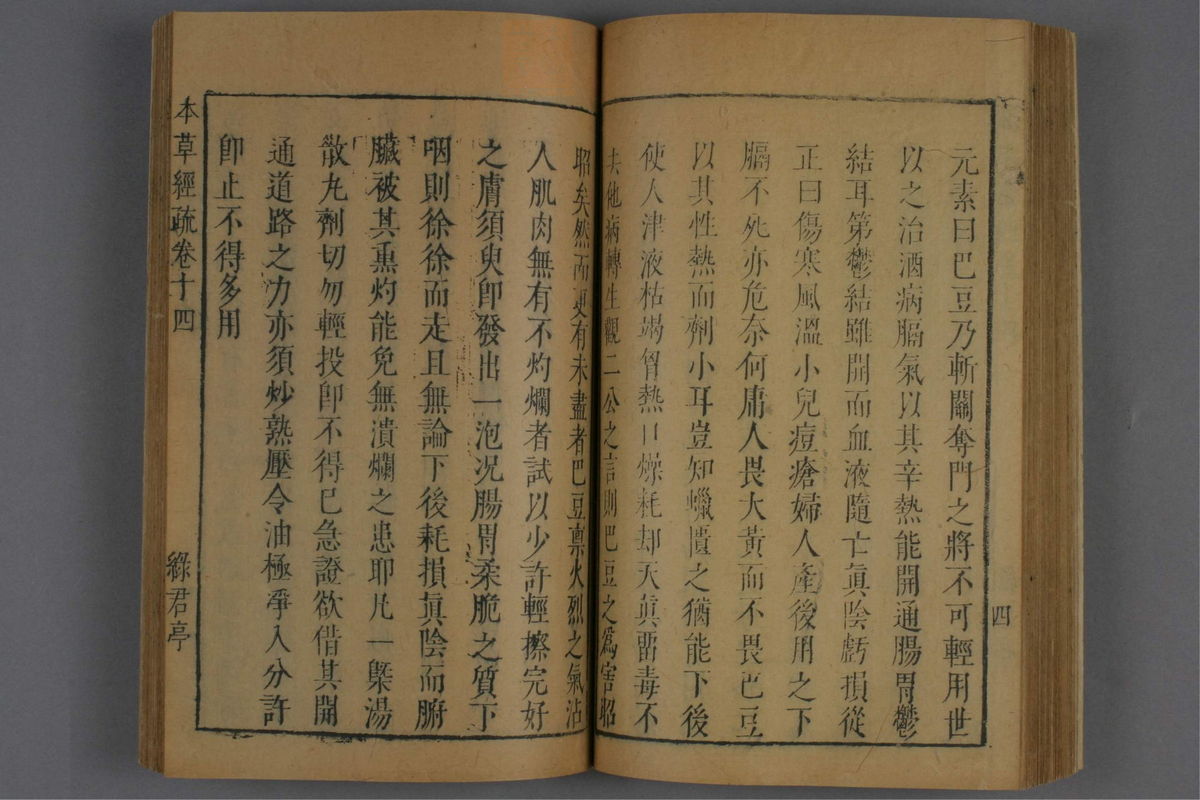 元素曰巴豆乃斬關奪門之將不可輕用世
以之治酒病膈氣以其辛熱能開通腸胃鬱
結耳第鬱結雖開而血液隨亡眞陰虧損從
正曰傷寒風溫小兒痘瘡婦人產後用之下
膈不死亦危奈何庸人畏大黃而不畏巴豆
以其性熱而劑小耳豈知蠟匱之猶能下後
使人津液枯竭胷熱口燥耗却天眞畱毒不
去他病轉生觀二公之言則巴豆之爲害昭
四
昭矣然而更有未盡者巴豆禀火烈之氣沾
人肌肉無有不灼爛者試以少許輕擦完好
之膚須臾卽發出一泡况腸胃柔脆之質下
咽則徐徐而走且無論下後耗損眞陰而腑
臟被其熏灼能免無潰爛之患耶凡一槩湯
散丸劑切勿輕投卽不得已急證欲借其開
通道路之力亦須炒熟壓令油極淨入分許
卽止不得多用
本草經疏卷十四
綠君亭